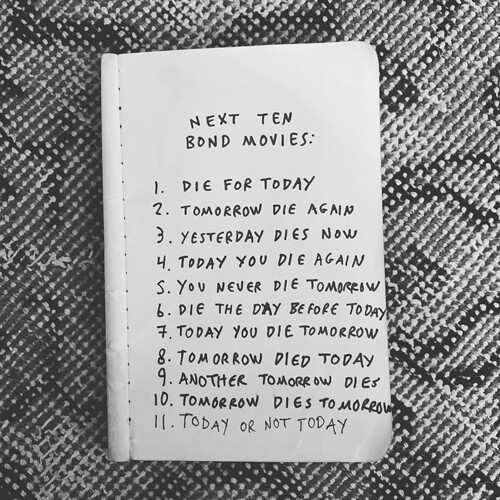 NEXT TEN
BOND MOVIES:
1. DIE FOR TODAY
2. TOMORROW DIE AGAIN
3. YESTERDAY DIES NOW
4. TODAY YOU DIE AGAIN
5. YOU NEVER DIE TOMORROW
6. DIE THE DAY BEFORE TODAY
7. TODAY YOU DIE TOMORROW
8. TOMORROW DIED TODAY
9. ANOTHER TOMORROW DIES
10. TOMORROW DIES TOMORROW
11. TODAY OR NOT TODAY